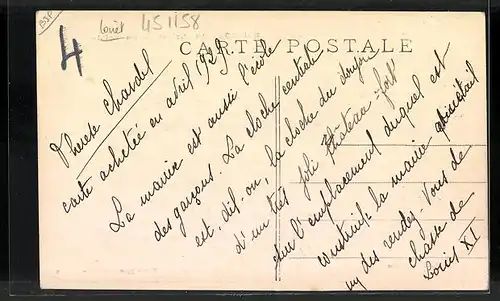 BSF
Loiret
451158
4
CARTE POSTALE
Thérèse Chardel
carte achetée en avril 1929
La mairie est aussi l'école
des garçons. La cloche centrale
est, dit-on, la cloche du donjon
d'un très joli château-fort
sur l'emplacement duquel est
construite la mairie c'était
un des rendez-vous de
chasse de
Louis XI